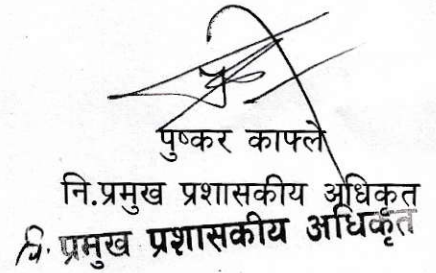 पुष्कर काफ्ले
नि.प्रमुख प्रशासकीय अधिकृत
नि. प्रमुख प्रशासकीय अधिकृत